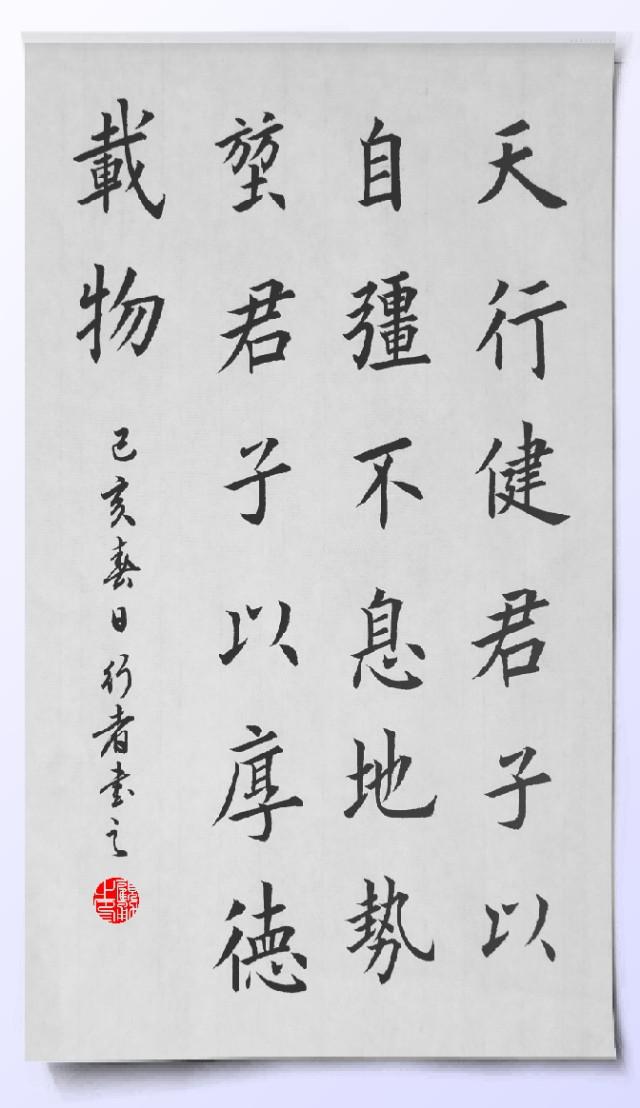 天行健君子以
自彊不息地勢
堃君子以厚德
載物
己亥春日行者書之